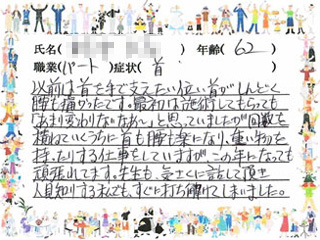 氏名( ) 年齢(62)
職業(パート)症状(首
以前は首を手で支えたい位い首がしんどく
腰も痛かったです。最初は施術してもらっても
「あまり変わらないなぁ〜」と思っていましたが回数を
積ねていくうちに首も腰も楽になり、重い物を
持ったりする仕事をしていますが、この年になっても
頑張れてます。先生も、気さくに話して頂き
人見知りする私でも、すぐに打ち解けてしまいました。